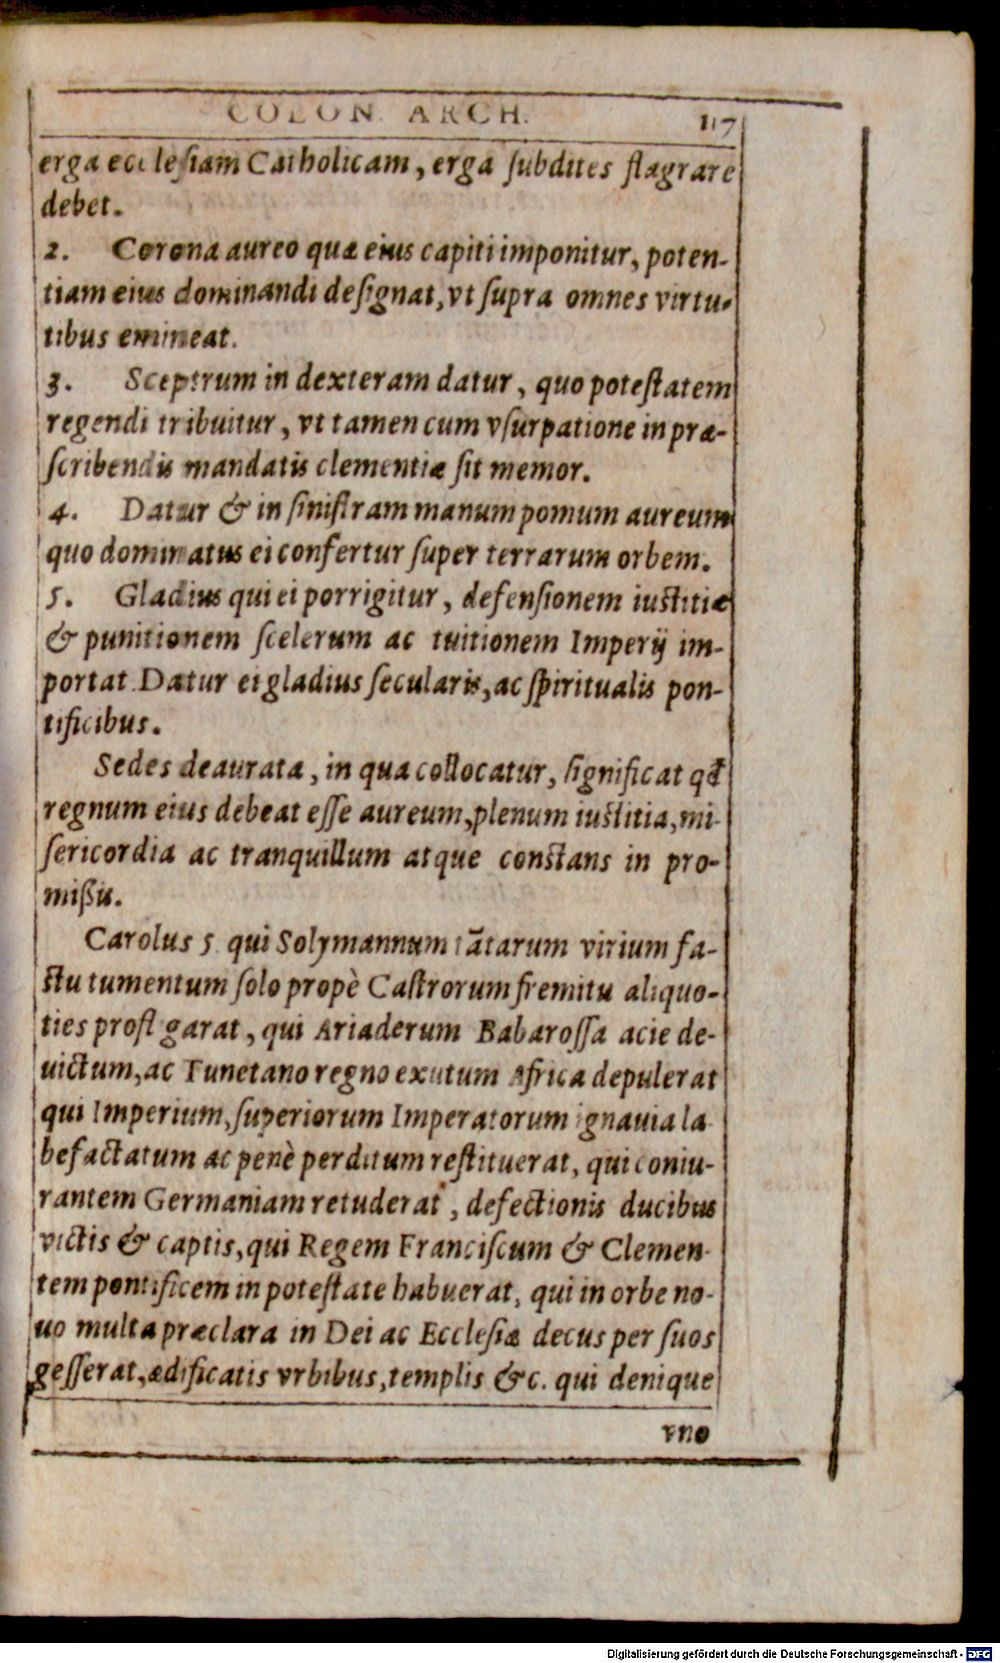 COLON. ARCH. 117
erga ecclesiam Catholicam, erga ſubdites flagrare
debet.
2. Corona aureo quæ eius capiti imponitur, poten-
tiam eius dominandi deſignat, vt ſupra omnes virtu-
tibus emineat.
3. Sceptrum in dexteram datur, quo poteſtatem
regendi tribuitur, vt tamen cum vſurpatione in præ-
ſcribendis mandatis clementiæ ſit memor.
4. Datur & in ſiniſtram manum pomum aureum
quo dominatus ei confertur ſuper terrarum orbem.
5. Gladius qui ei porrigitur, defenſionem iuſtitiæ
& punitionem ſcelerum ac tuitionem Imperij im-
portat. Datur ei gladius ſecularis, ac ſpiritualis pon-
tificibus.
Sedes deaurata, in qua collocatur, ſignificat qđ
regnum eius debeat eſſe aureum, plenum iuſtitia, mi-
ſericordia ac tranquillum atque conſtans in pro-
mißis.
Carolus 5. qui Solymannum tãtarum virium fa-
ſtu tumentum ſolo propè Caſtrorum fremitu aliquo-
ties profl garat, qui Ariaderum Babaroſſa acie de-
uictum, ac Tunetano regno exutum Africa depulerat
qui Imperium, ſuperiorum Imperatorum ignauia la-
befactatum ac penè perditum reſtituerat, qui coniu-
rantem Germaniam retuderat, defectionis ducibus
victis & captis, qui Regem Franciſcum & Clemen-
tem pontificem in poteſtate habuerat, qui in orbe no-
uo multa præclara in Dei ac Eccleſiæ decus per ſuos
geſſerat, ædificatis vrbibus, templis &c. qui denique
vno
Digitalisierung gefördert durch die Deutsche Forschungsgemeinschaft - DFG